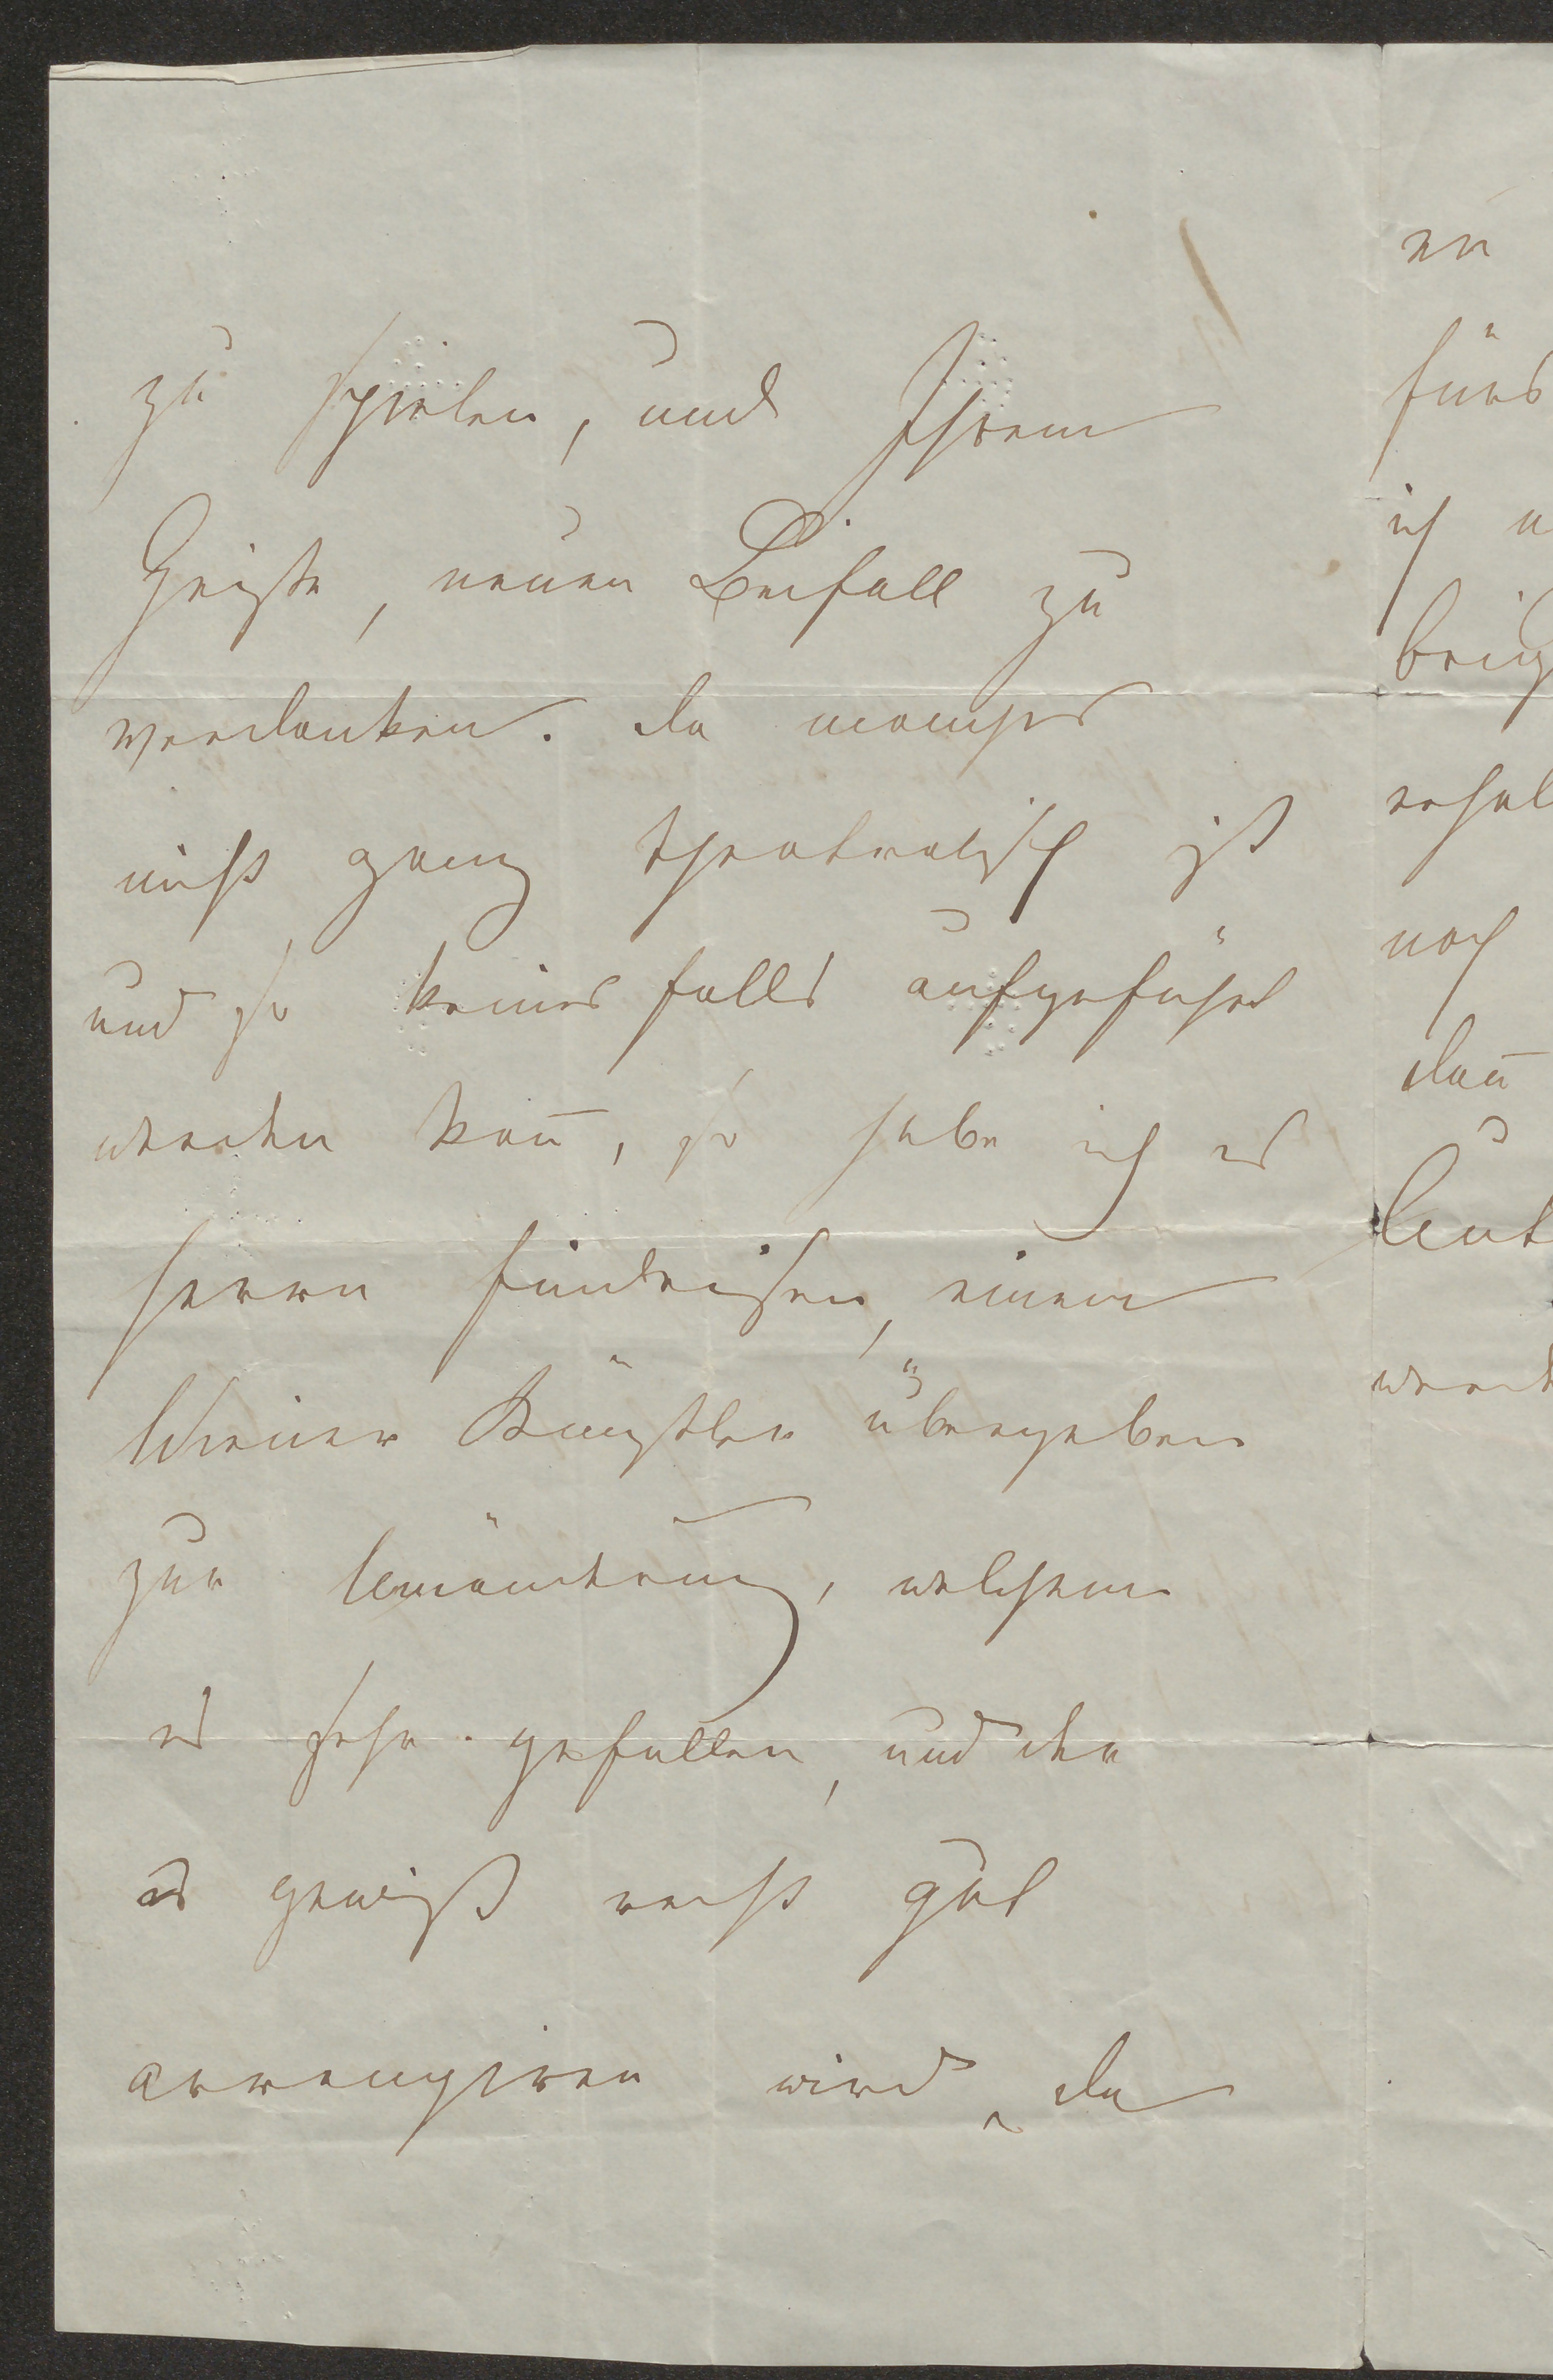 zu spielen, und Ihrem
Geiste, neuen Beifall zu
verdanken. da manches
nicht ganz theatralisch ist
und so keines falls aufgeführt
werden kan̄, so habe ich es
Herrn Findeisen, einem
Wiener Künstler übergeben
zur Umänderung, welchem
es sehr gefallen, und der
es gewiß recht gut
arrangiren wird, da
en
fürs
ich
noch
dan̄